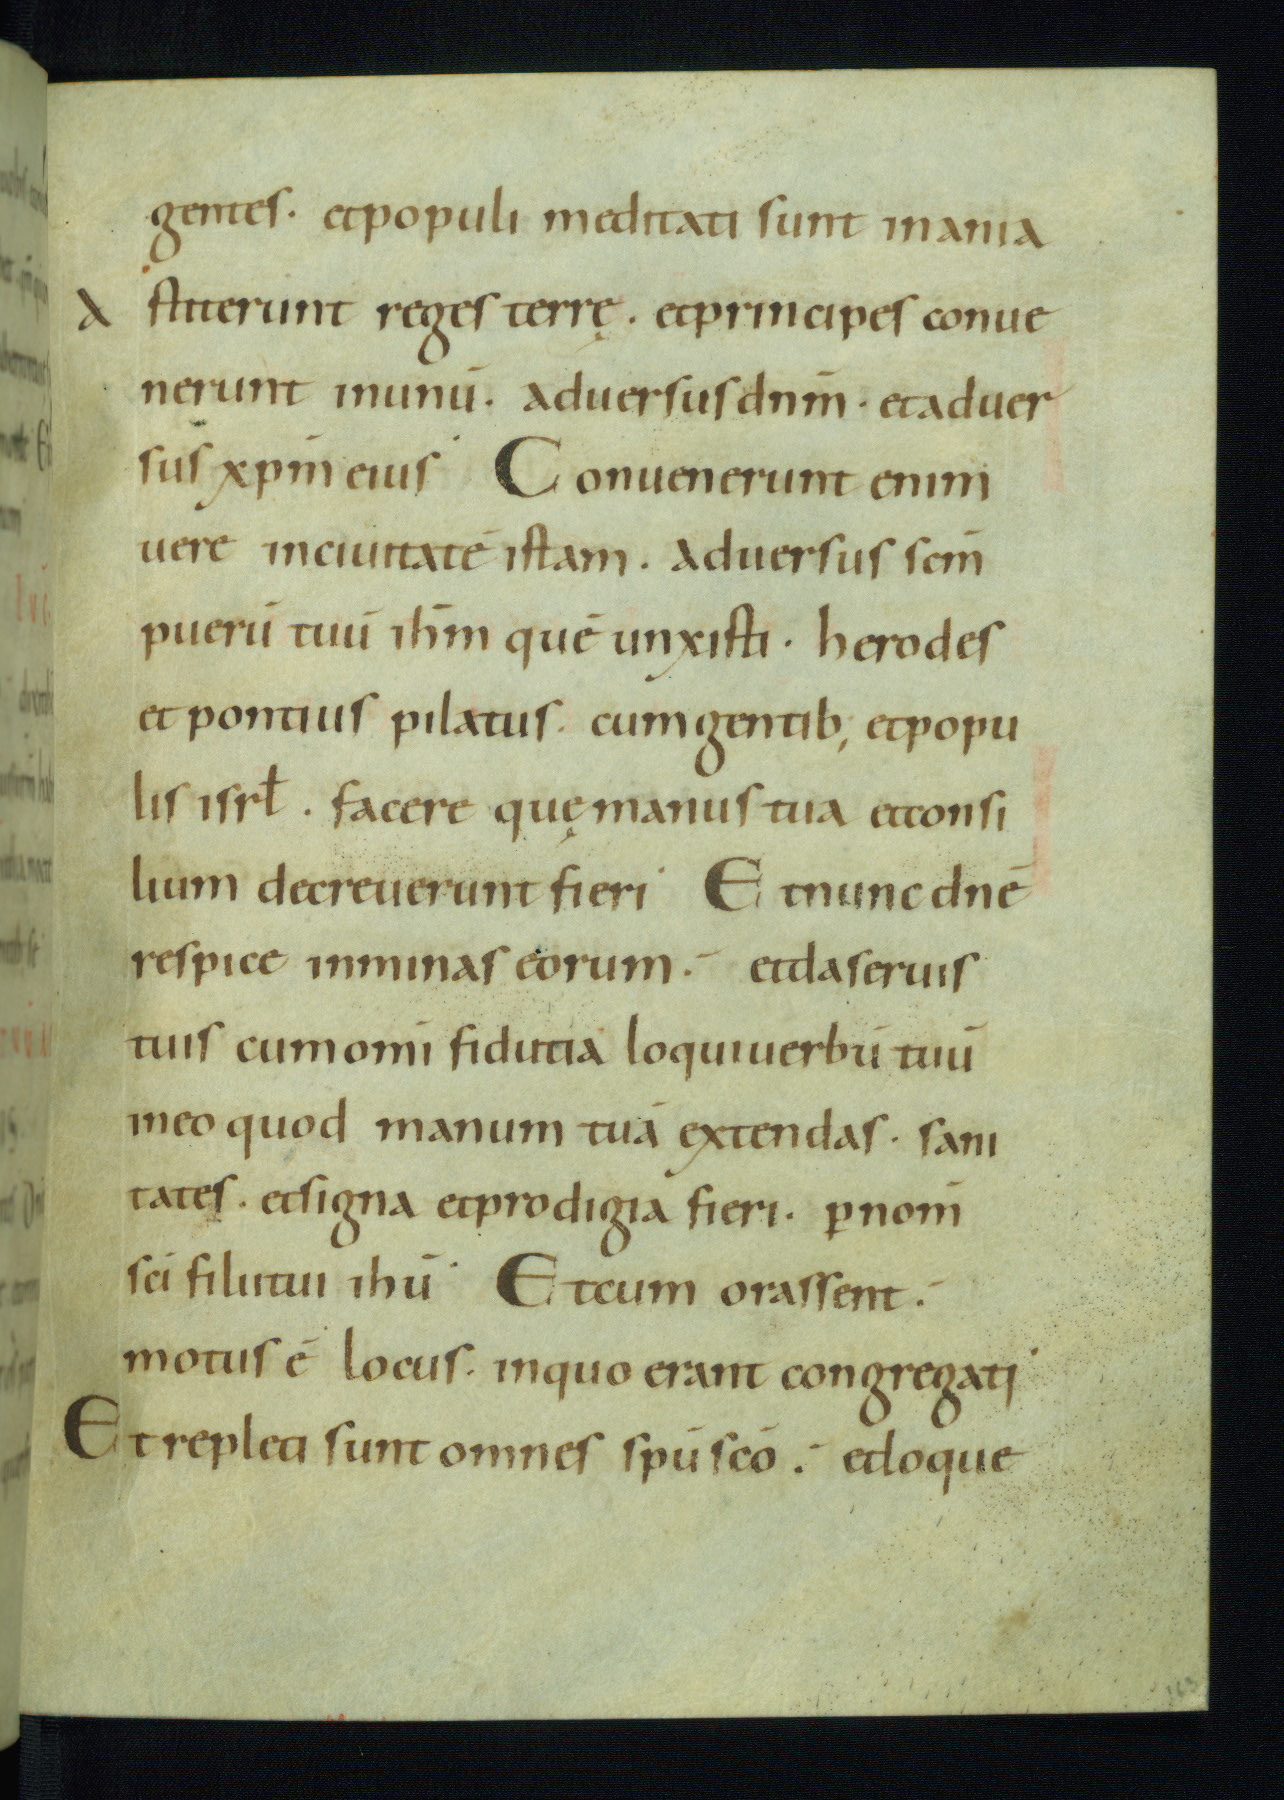 gentes. et populi meditati sunt inania
A stiterunt reges terrę. et principes conue
nerunt inunū. aduersus dn̄m. et aduer
sus xp̄m eius Conuenerunt enim
uere in ciuitatē istam. aduersus scm̄
puerū tuū ih̄m quē unxisti. herodes
et pontius pilatus. cum gentib; et popu
lis isrł. facere quę manus tua et consi
lium decreuerunt fieri Et nunc dnē
respice in minas eorum. et da seruis
tuis cum omī fidutia loqui uerbū tuū
in eo quod manum tuā extendas. sani
tates. et signa et prodigia fieri. ꝑ nom̄
scī filii tui ihū Et cum orassent.
motus ē locus. in quo erant congregati
Et repleti sunt omnes spū scō. et loque
163